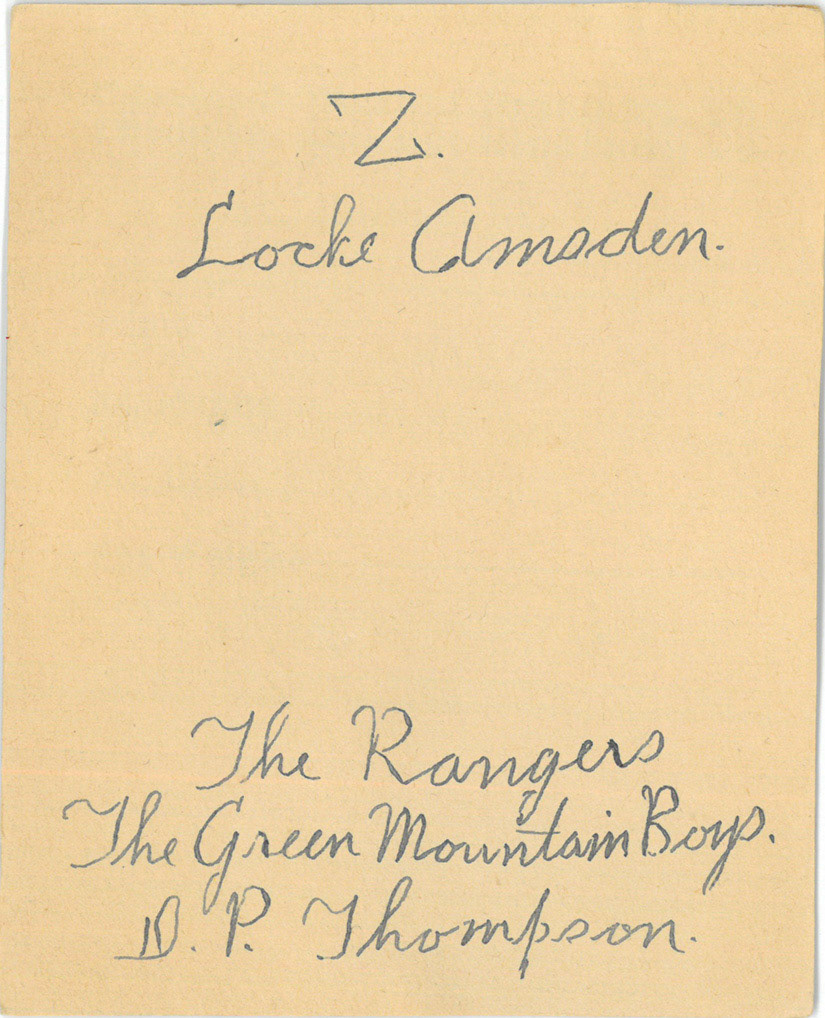 Z.
Locke Amsden.
The Rangers
The Green Mountain Boys.
D. P. Thompson.